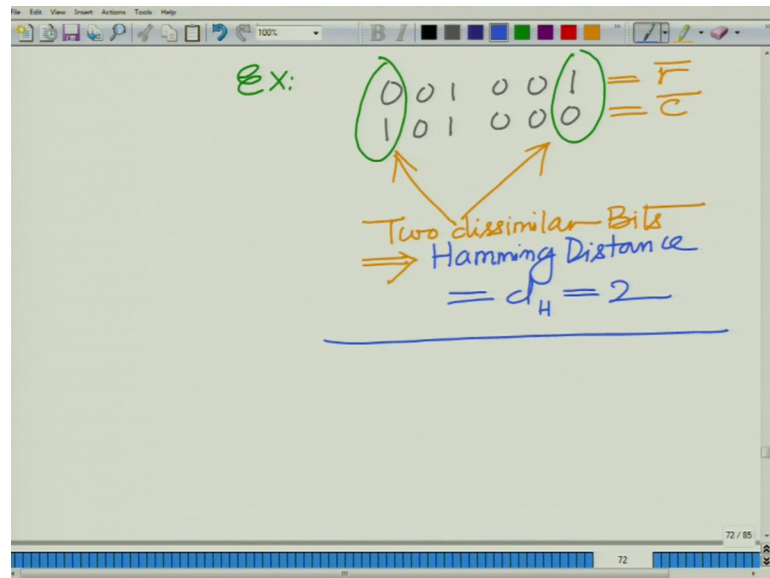 File Edit View Insert Actions Tools Help
100%
B I
Ex: 0 0 1 0 0 1 = r
1 0 1 0 0 0 = c
Two dissimilar Bits
⇒ Hamming Distance
= d_H = 2
72 / 85
72